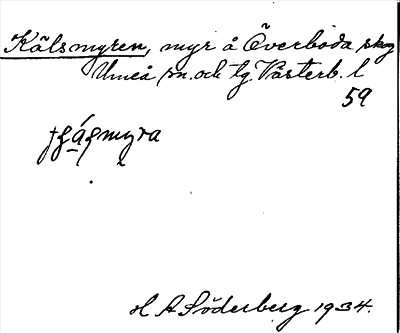 Kålsmyren, myr å Överboda skog
Umeå sn. och tg. Västerb. l
59
H A Söderberg 1934.